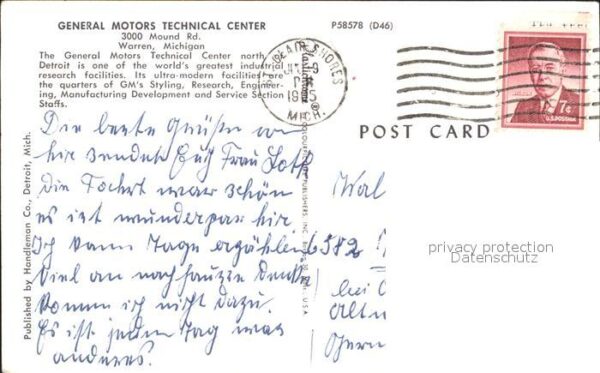 GENERAL MOTORS TECHNICAL CENTER
3000 Mound Rd.
Warren, Michigan
The General Motors Technical Center north
Detroit is one of the world's greatest industrial
research facilities. Its ultra-modern facilities are
the quarters of GM's Styling, Research, Engineer-
ing, Manufacturing Development and Service Section
Staffs.
P58578 (D46)
ST. CLAIR SHORES
MICH.
7¢
U.S. POSTAGE
POST CARD
Die beste Grüße von
hir sendet Euch Frau Lott
die Fahrt war schön
es ist wunderpar hir.
Ich kann Tage erzählen
Viel an nachhause
komm ich nicht dazu.
Es ist jeden Tag was
anderes.
Wal
6582
bei
Altn
privacy protection
Datenschutz
Published by Handleman Co., Detroit, Mich.